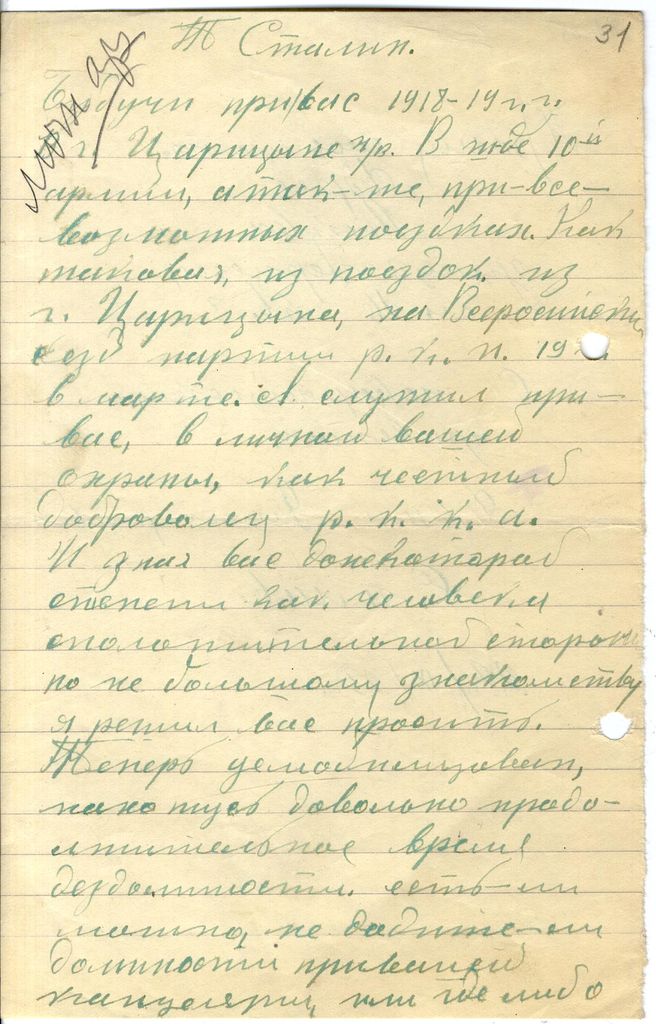 31
Т Сталин.
Будучи при вас 1918-19 г.г.
г. Царицыне н/р. В штбе 10й
армии, а так-же, при-все-
возможных поездках. Как
таковая, из поездок из
г. Царицына, на Всеросийский
сезд партии р. к. п. 19
в марте. с. служил при-
вас, в личной вашей
охраны, как честный
доброволец р. к. к. а.
И зная вас донекоторой
степени как человека
сполотительной стороны
по не большому знакомству
я решил вас просить.
Теперь демобилизован,
нахотусь довольно продо-
лжительное время
бездолжности. есть-ли
можно, не дадите-ли
должности привашей
канцелярии, или где либо